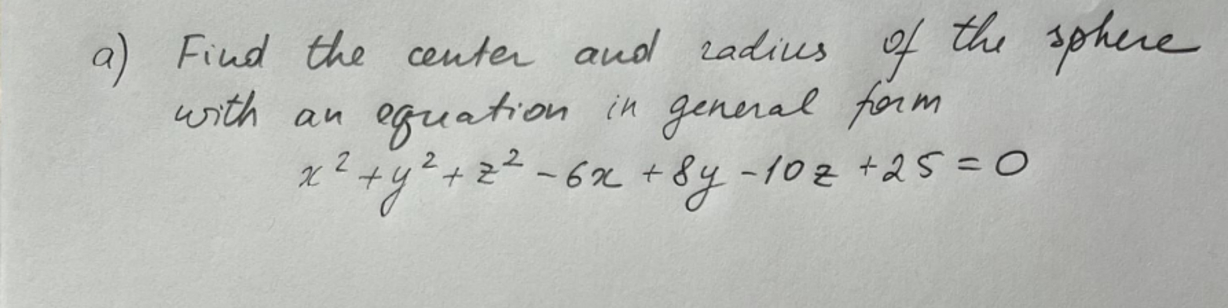 a) Find the center and radius of the sphere
with an equation in general form
x² + y² + z² - 6x + 8y - 10z + 25 = 0